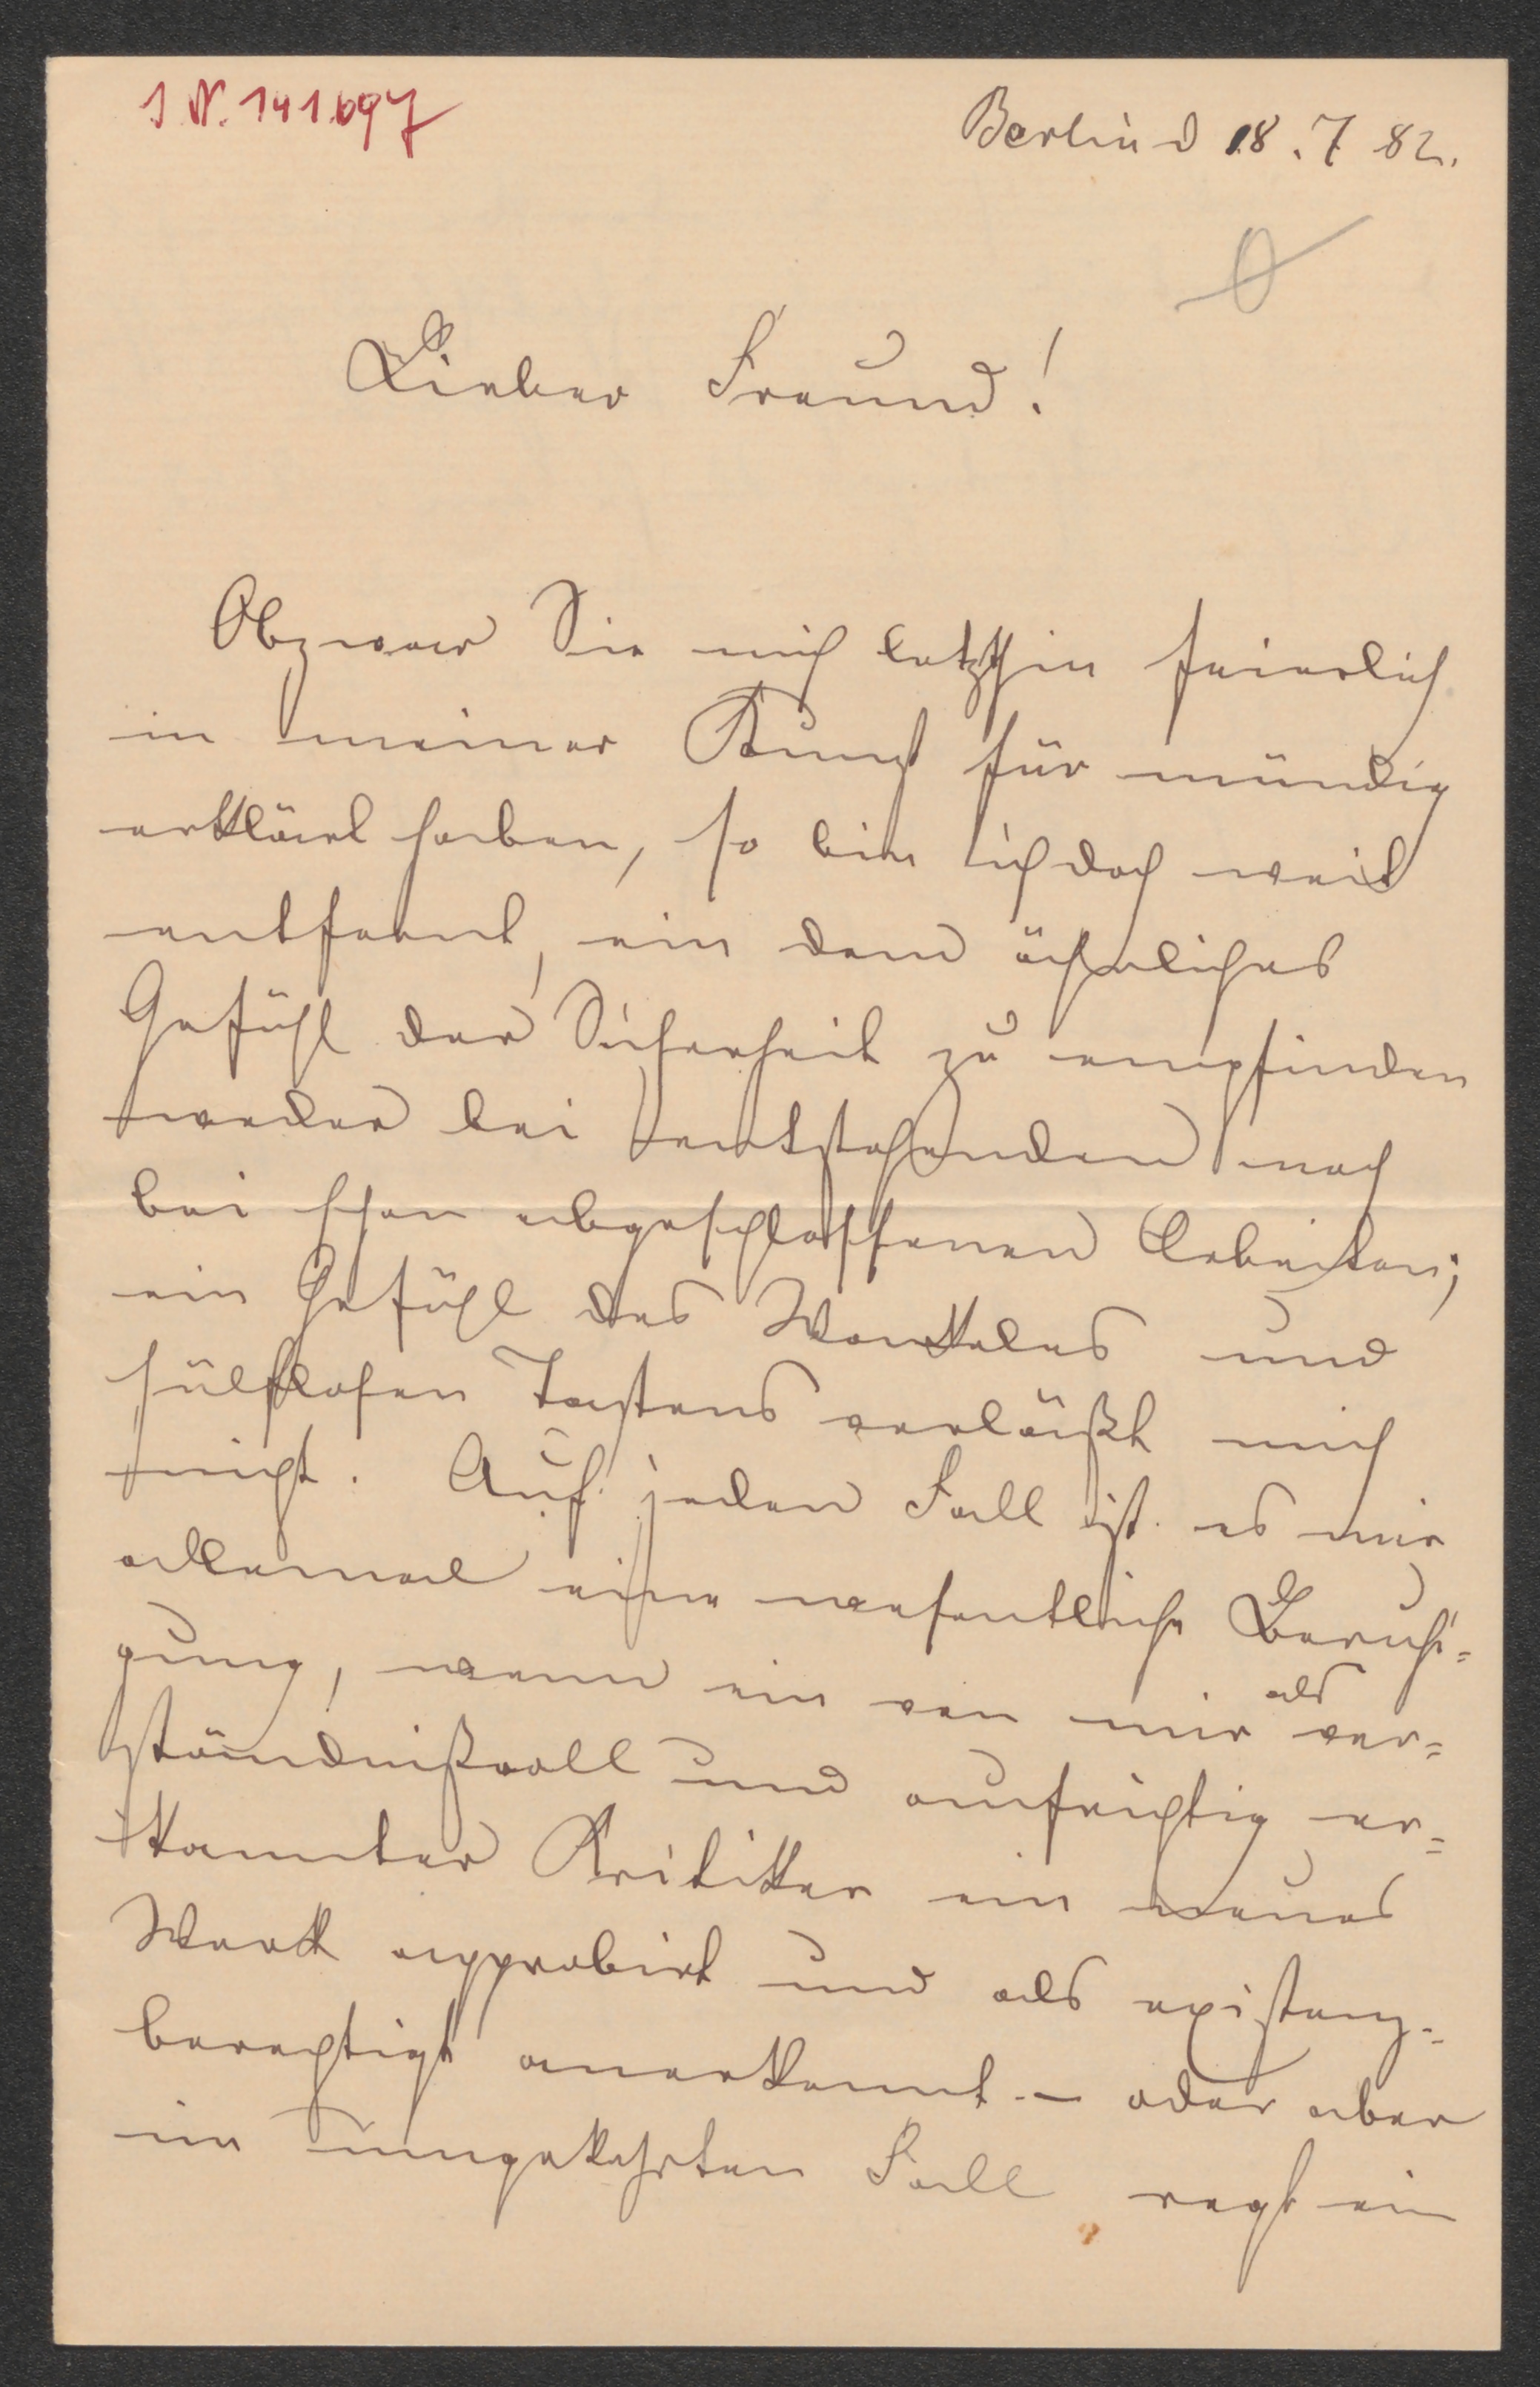 I.N. 141.097
Berlin d 18. 7 82.
Lieber Freund!
Obzwar Sie mich letzthin feierlich
in meiner Kunst für mündig
erklärt haben, so bin ich doch weit
entfernt, ein dem ähnliches
Gefühl der Sicherheit zu empfinden
weder bei entstehenden noch
bei schon abgeschlossenen Arbeiten;
ein Gefühl des Wankelns und
hülflosen Tastens verläßt mich
nicht. Auf jeden Fall ist es mir
allemal eine wesentliche Beruhi-
gung, wenn ein von mir als ver-
ständnißvoll und aufrichtig er-
kannter Kritiker ein neues
Werk approbirt und als existenz-
berechtigt anerkennt – oder aber
im umgekehrten Fall regt ein